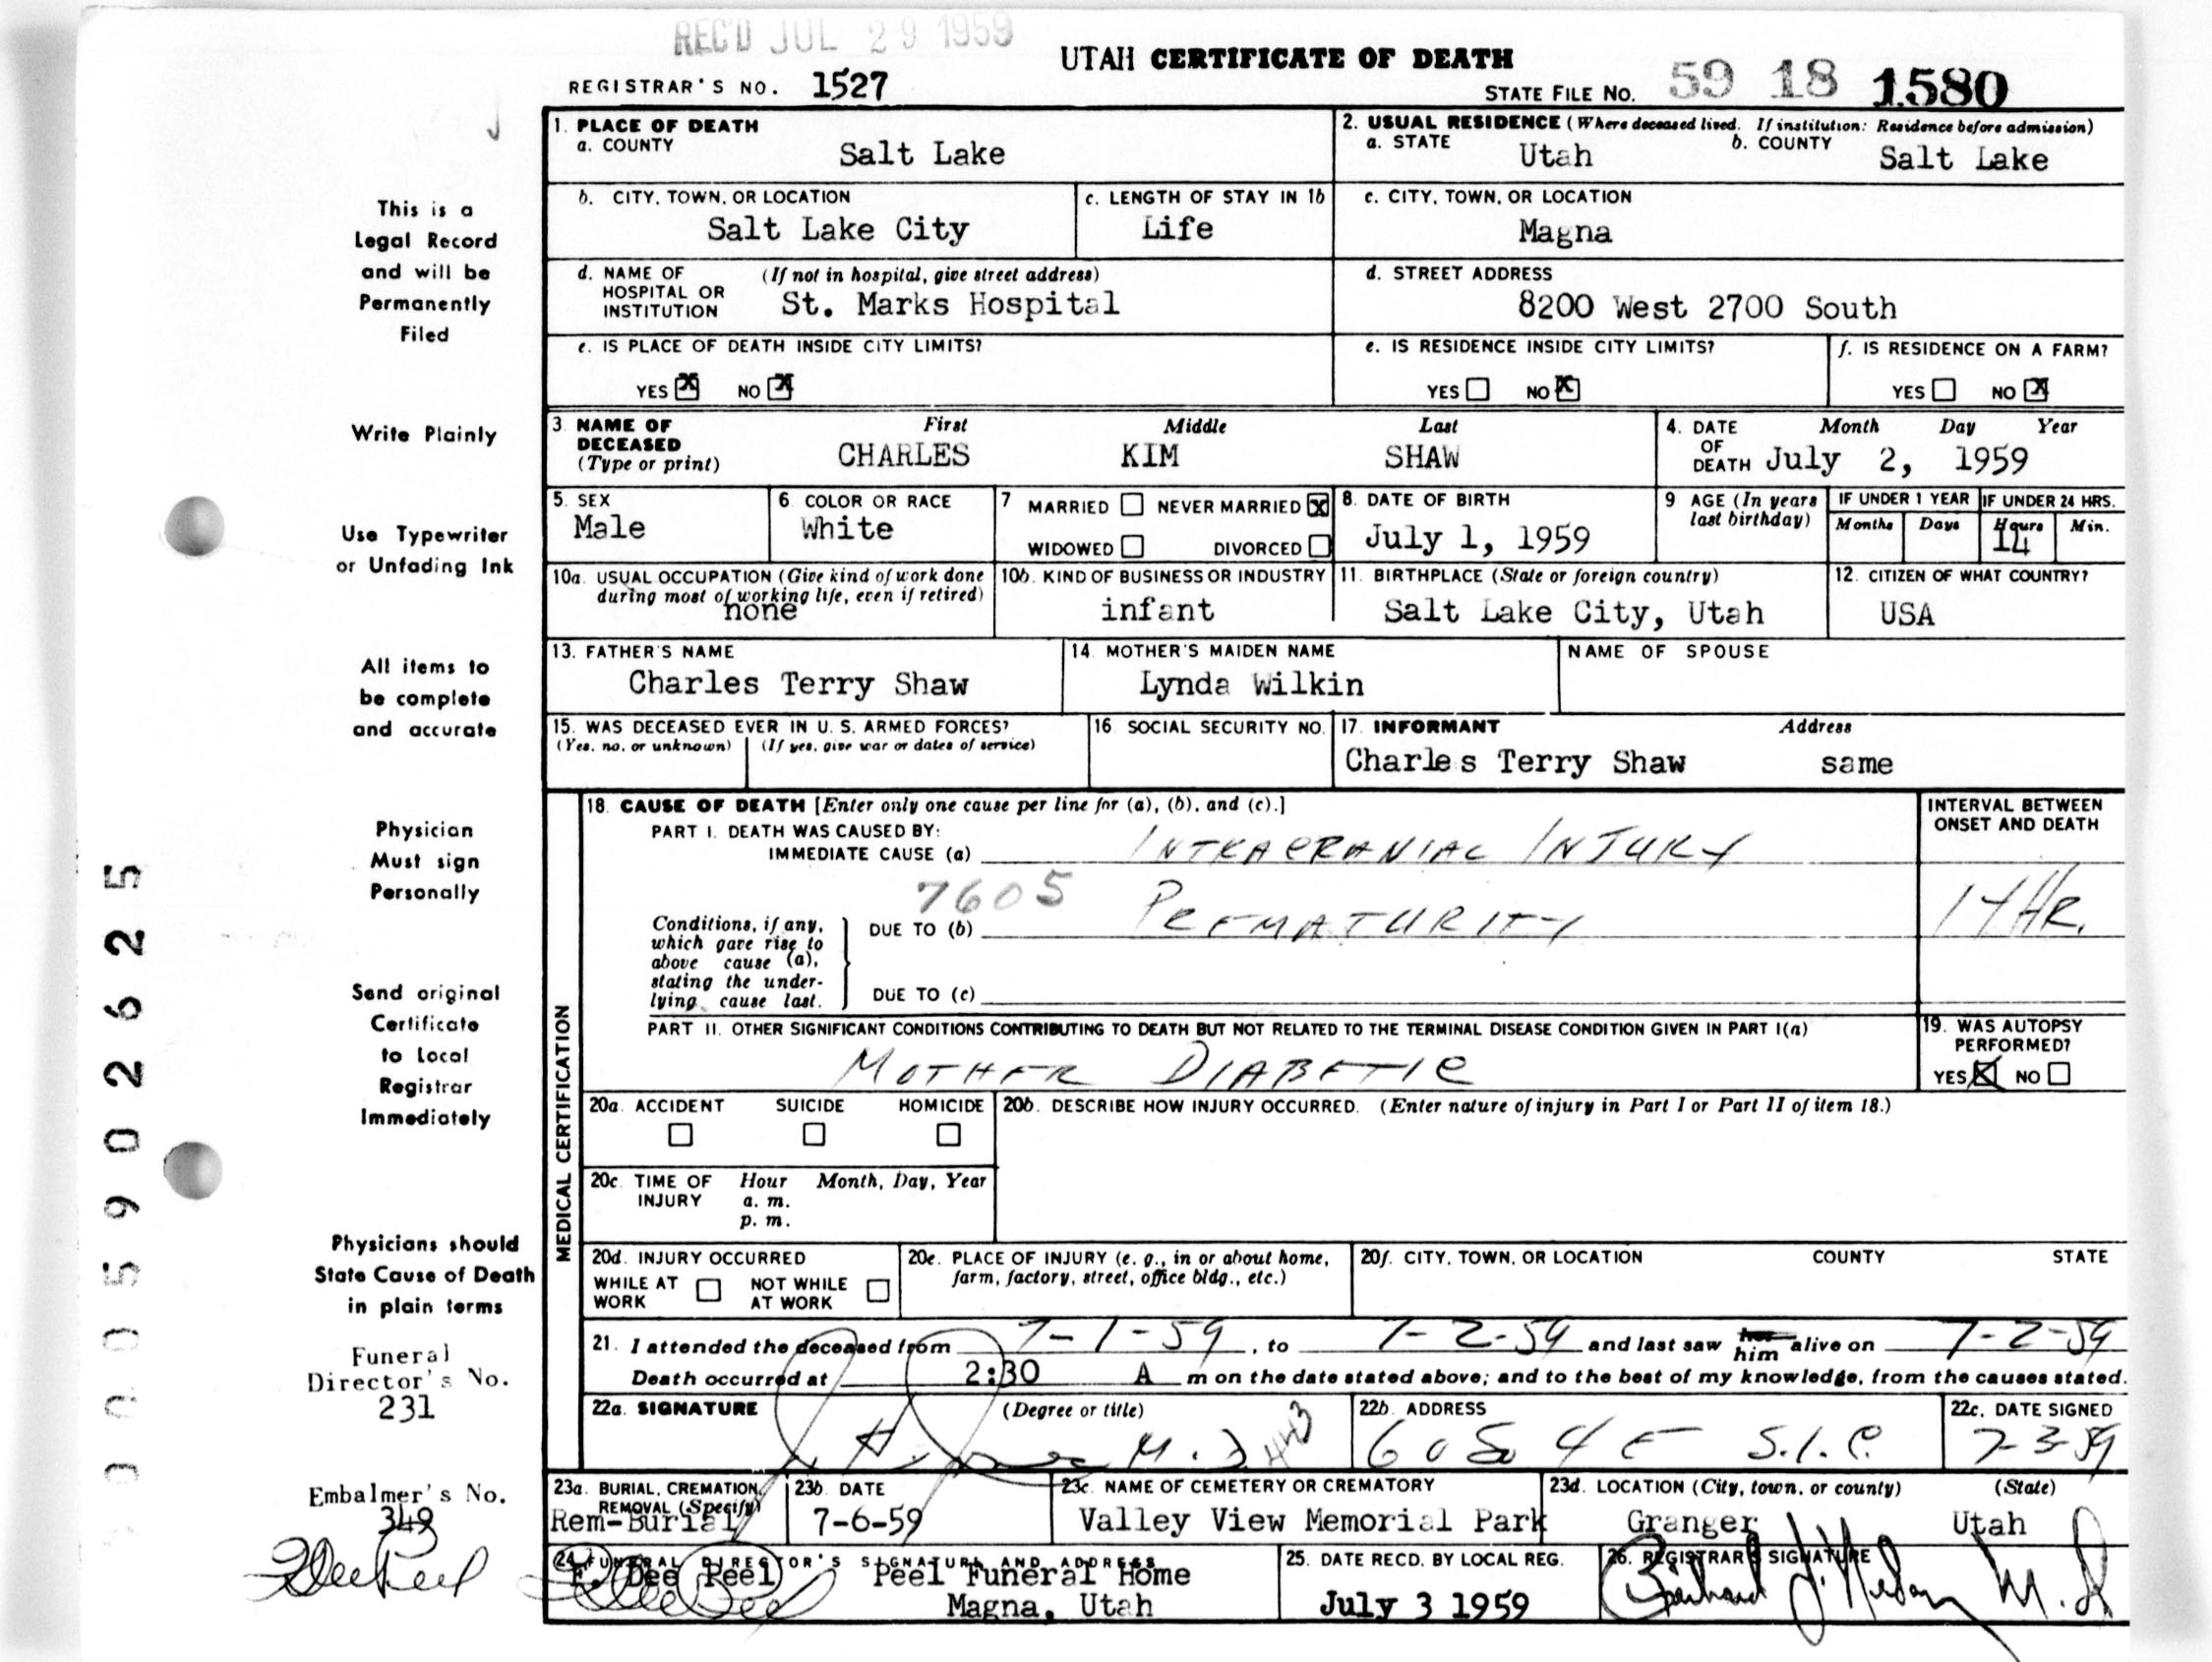 REC'D JUL 29 1959
UTAH CERTIFICATE OF DEATH
REGISTRAR'S NO. 1527
STATE FILE NO. 59 18 1580
1. PLACE OF DEATH
a. COUNTY
Salt Lake
2. USUAL RESIDENCE (Where deceased lived. If institution: Residence before admission)
a. STATE Utah b. COUNTY Salt Lake
b. CITY, TOWN, OR LOCATION
Salt Lake City
c. LENGTH OF STAY IN 1b
Life
c. CITY, TOWN, OR LOCATION
Magna
d. NAME OF HOSPITAL OR INSTITUTION (If not in hospital, give street address)
St. Marks Hospital
d. STREET ADDRESS
8200 West 2700 South
e. IS PLACE OF DEATH INSIDE CITY LIMITS?
YES X NO X
e. IS RESIDENCE INSIDE CITY LIMITS?
YES NO X
f. IS RESIDENCE ON A FARM?
YES NO X
3 NAME OF DECEASED (Type or print)
First Middle Last
CHARLES KIM SHAW
4. DATE OF DEATH
Month Day Year
July 2, 1959
5. SEX
Male
6. COLOR OR RACE
White
7 MARRIED NEVER MARRIED X
WIDOWED DIVORCED
8. DATE OF BIRTH
July 1, 1959
9 AGE (In years last birthday)
IF UNDER 1 YEAR
Months Days
IF UNDER 24 HRS.
Hours Min.
14
10a. USUAL OCCUPATION (Give kind of work done during most of working life, even if retired)
none
10b. KIND OF BUSINESS OR INDUSTRY
infant
11. BIRTHPLACE (State or foreign country)
Salt Lake City, Utah
12. CITIZEN OF WHAT COUNTRY?
USA
13. FATHER'S NAME
Charles Terry Shaw
14. MOTHER'S MAIDEN NAME
Lynda Wilkin
NAME OF SPOUSE
15. WAS DECEASED EVER IN U. S. ARMED FORCES?
(Yes, no, or unknown) (If yes, give war or dates of service)
16. SOCIAL SECURITY NO.
17. INFORMANT Address
Charles Terry Shaw same
MEDICAL CERTIFICATION
18. CAUSE OF DEATH [Enter only one cause per line for (a), (b), and (c).]
PART I. DEATH WAS CAUSED BY:
IMMEDIATE CAUSE (a) INTRACRANIAL INJURY
7605
Conditions, if any, which gave rise to above cause (a), stating the underlying cause last.
DUE TO (b) PREMATURITY
DUE TO (c)
INTERVAL BETWEEN ONSET AND DEATH
14 HR.
PART II. OTHER SIGNIFICANT CONDITIONS CONTRIBUTING TO DEATH BUT NOT RELATED TO THE TERMINAL DISEASE CONDITION GIVEN IN PART I(a)
MOTHER DIABETIC
19. WAS AUTOPSY PERFORMED?
YES X NO
20a. ACCIDENT SUICIDE HOMICIDE
20b. DESCRIBE HOW INJURY OCCURRED. (Enter nature of injury in Part I or Part II of item 18.)
20c. TIME OF INJURY Hour Month, Day, Year
a. m.
p. m.
20d. INJURY OCCURRED
WHILE AT WORK NOT WHILE AT WORK
20e. PLACE OF INJURY (e. g., in or about home, farm, factory, street, office bldg., etc.)
20f. CITY, TOWN, OR LOCATION COUNTY STATE
21. I attended the deceased from 7-1-59, to 7-2-59 and last saw her him alive on 7-2-59
Death occurred at 2:30 A m on the date stated above; and to the best of my knowledge, from the causes stated.
22a. SIGNATURE (Degree or title)
M.D.
22b. ADDRESS
60 So 4 E S.L.C.
22c. DATE SIGNED
7-3-59
23a. BURIAL, CREMATION, REMOVAL (Specify)
Rem-Burial
23b. DATE
7-6-59
23c. NAME OF CEMETERY OR CREMATORY
Valley View Memorial Park
23d. LOCATION (City, town, or county) (State)
Granger Utah
24. FUNERAL DIRECTOR'S SIGNATURE AND ADDRESS
F. Dee Peel Peel Funeral Home
Magna, Utah
25. DATE RECD. BY LOCAL REG.
July 3 1959
26. REGISTRAR'S SIGNATURE
M.D.
This is a
Legal Record
and will be
Permanently
Filed
Write Plainly
Use Typewriter
or Unfading Ink
All items to
be complete
and accurate
Physician
Must sign
Personally
Send original
Certificate
to Local
Registrar
Immediately
Physicians should
State Cause of Death
in plain terms
Funeral
Director's No.
231
Embalmer's No.
349
0005902625